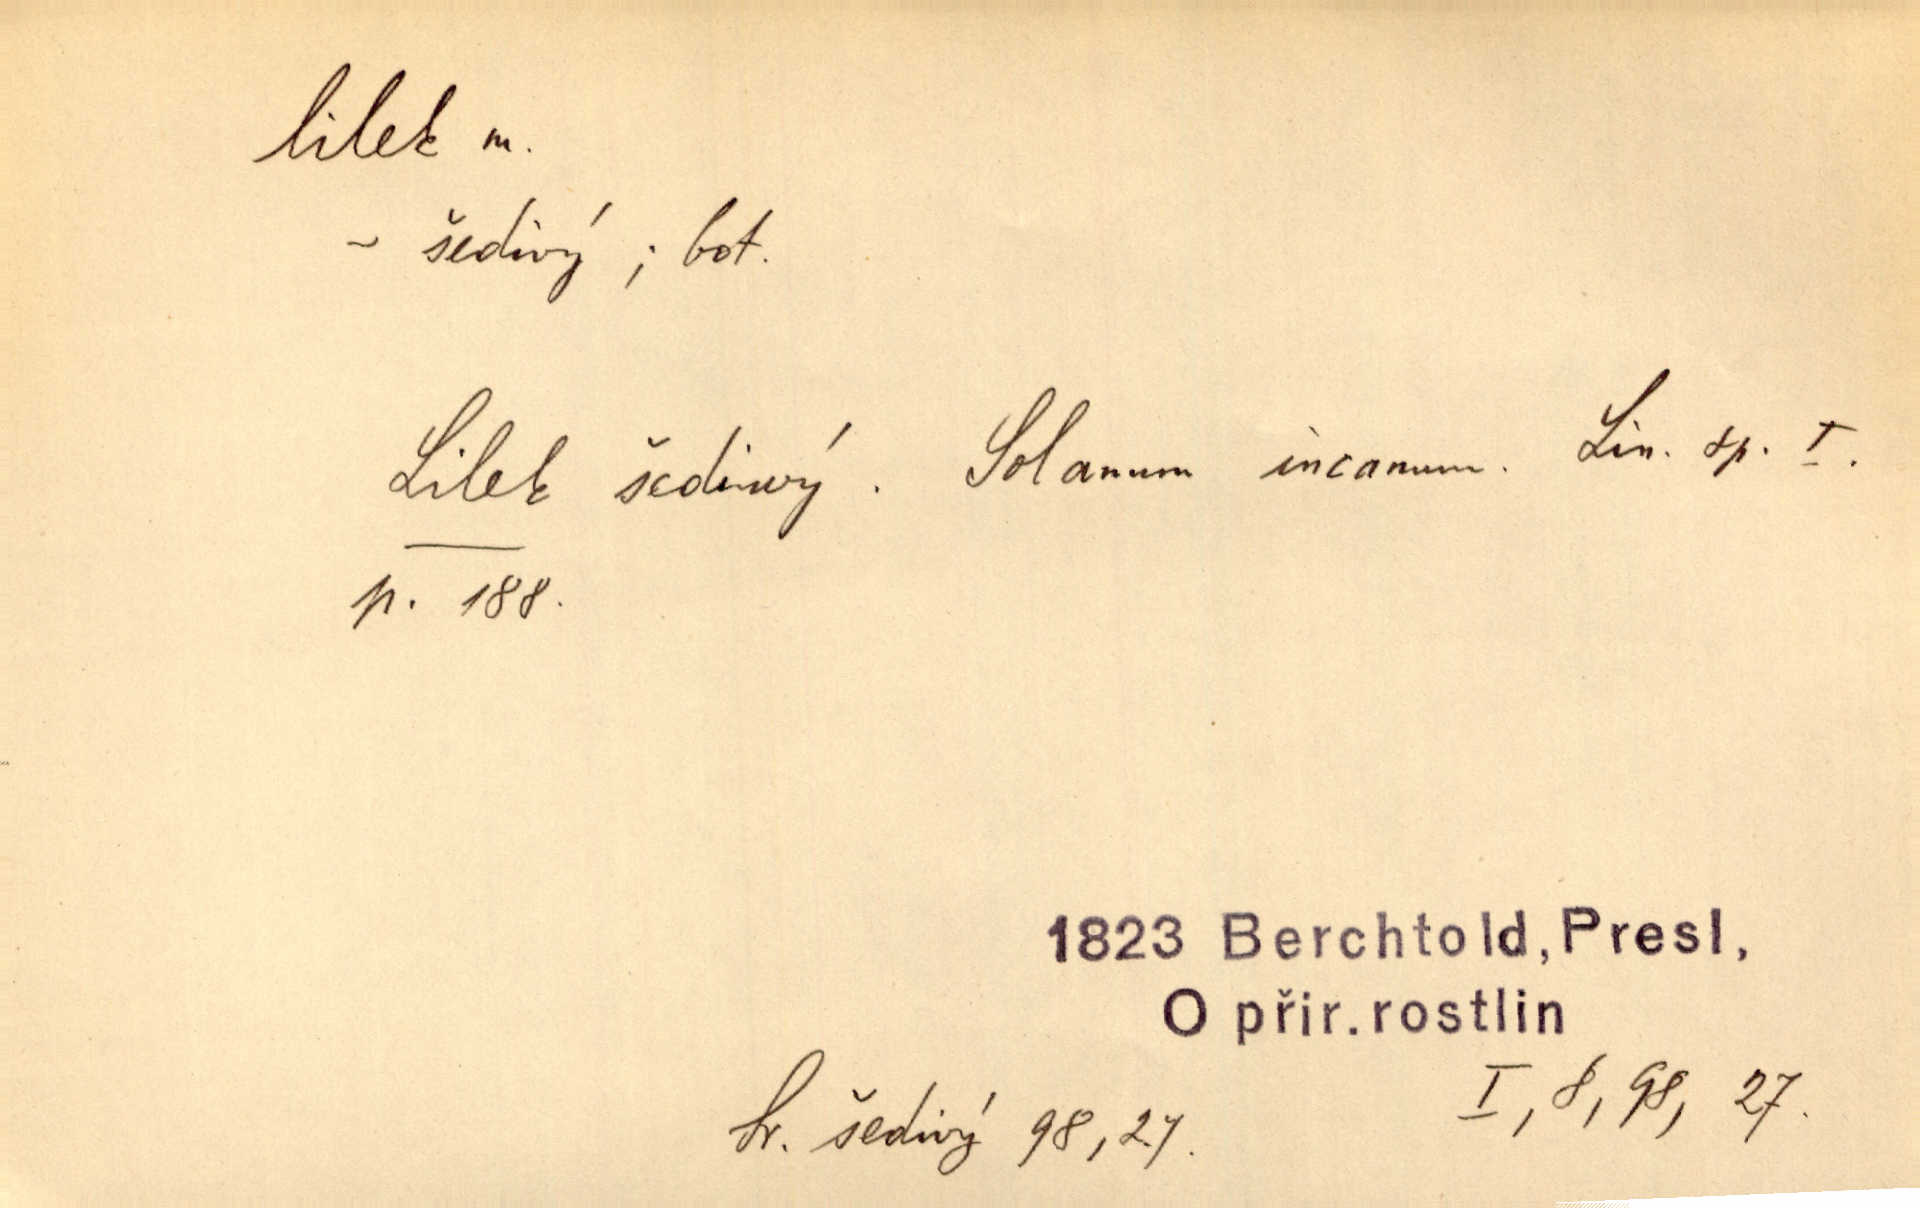 lilek m.
~ šedivý ; bot.
Lilek šediwý. Solanum incanum. Lin. sp. I.
p. 188.
1823 Berchtold, Presl,
O přir. rostlin
I, 8, 98, 27.
Sr. šedivý 98, 27.